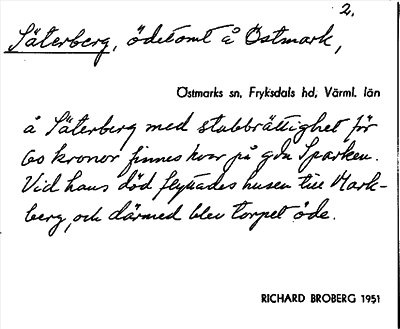 2.
Säterberg, ödetomt å Östmark,
Östmarks sn, Fryksdals hd, Värml. län
å Säterberg med stubbrättighet för
60 kronor finnes kvar på gdn Sparken.
Vid hans död flyttades husen till Mark-
berg, och därmed blev torpet öde.
RICHARD BROBERG 1951